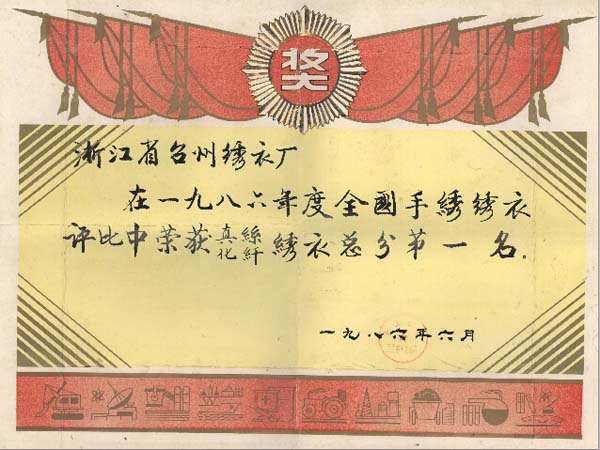 奖
浙江省台州绣衣厂
在一九八六年度全國手绣绣衣
评比中荣获真絲化纤绣衣总分第一名。
一九八六年六月